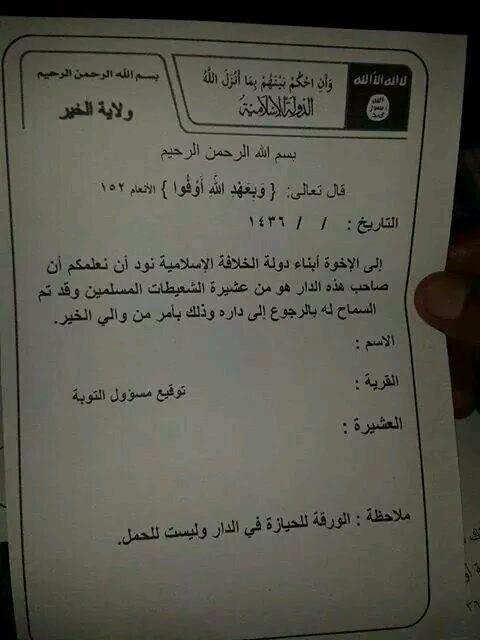 بسم الله الرحمن الرحيم
ولاية الخير
وَأَنِ احْكُمْ بَيْنَهُمْ بِمَا أَنْزَلَ اللَّهُ
الدولة الإسلامية
لا إله إلا الله
الله
رسول
محمد
بسم الله الرحمن الرحيم
قال تعالى: { وَبِعَهْدِ اللَّهِ أَوْفُوا } الأنعام ١٥٢
التاريخ : / / ١٤٣٦
إلى الإخوة أبناء دولة الخلافة الإسلامية نود أن نعلمكم أن
صاحب هذه الدار هو من عشيرة الشعيطات المسلمين وقد تم
السماح له بالرجوع إلى داره وذلك بأمر من والي الخير.
الاسم :
القرية :
توقيع مسؤول التوبة
العشيرة :
ملاحظة : الورقة للحيازة في الدار وليست للحمل.